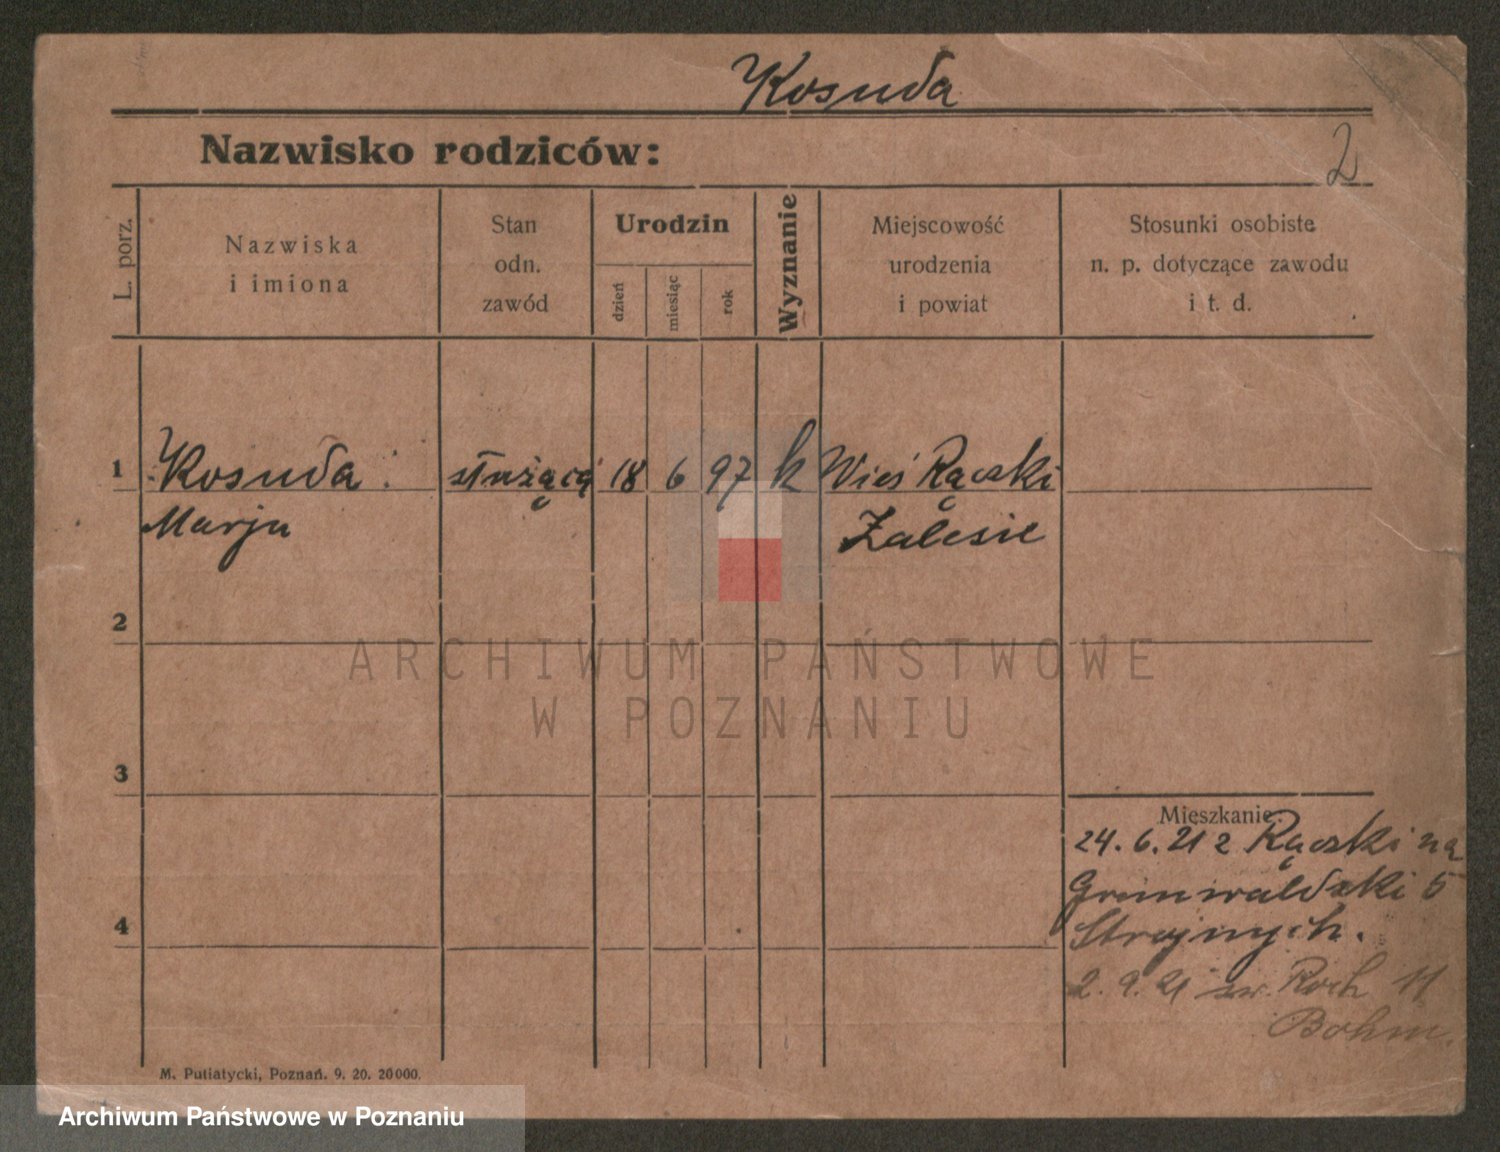 Kosuda
Nazwisko rodziców:
2
L. porz.
Nazwiska
i imiona
Stan
odn.
zawód
Urodzin
dzień
miesiąc
rok
Wyznanie
Miejscowość
urodzenia
i powiat
Stosunki osobiste
n. p. dotyczące zawodu
i t. d.
1 Kosuda służącą 18 6 97 k Wieś Rączki
Marja Zalesie
2
ARCHIWUM PAŃSTWOWE
W POZNANIU
3
Mieszkanie.
24. 6. 21 z Rączki na
Grunwaldzki 5
4
Strojnych.
2. 9. 21 św. Roch 11
Bohm.
M. Putiatycki, Poznań. 9. 20. 20000.
Archiwum Państwowe w Poznaniu